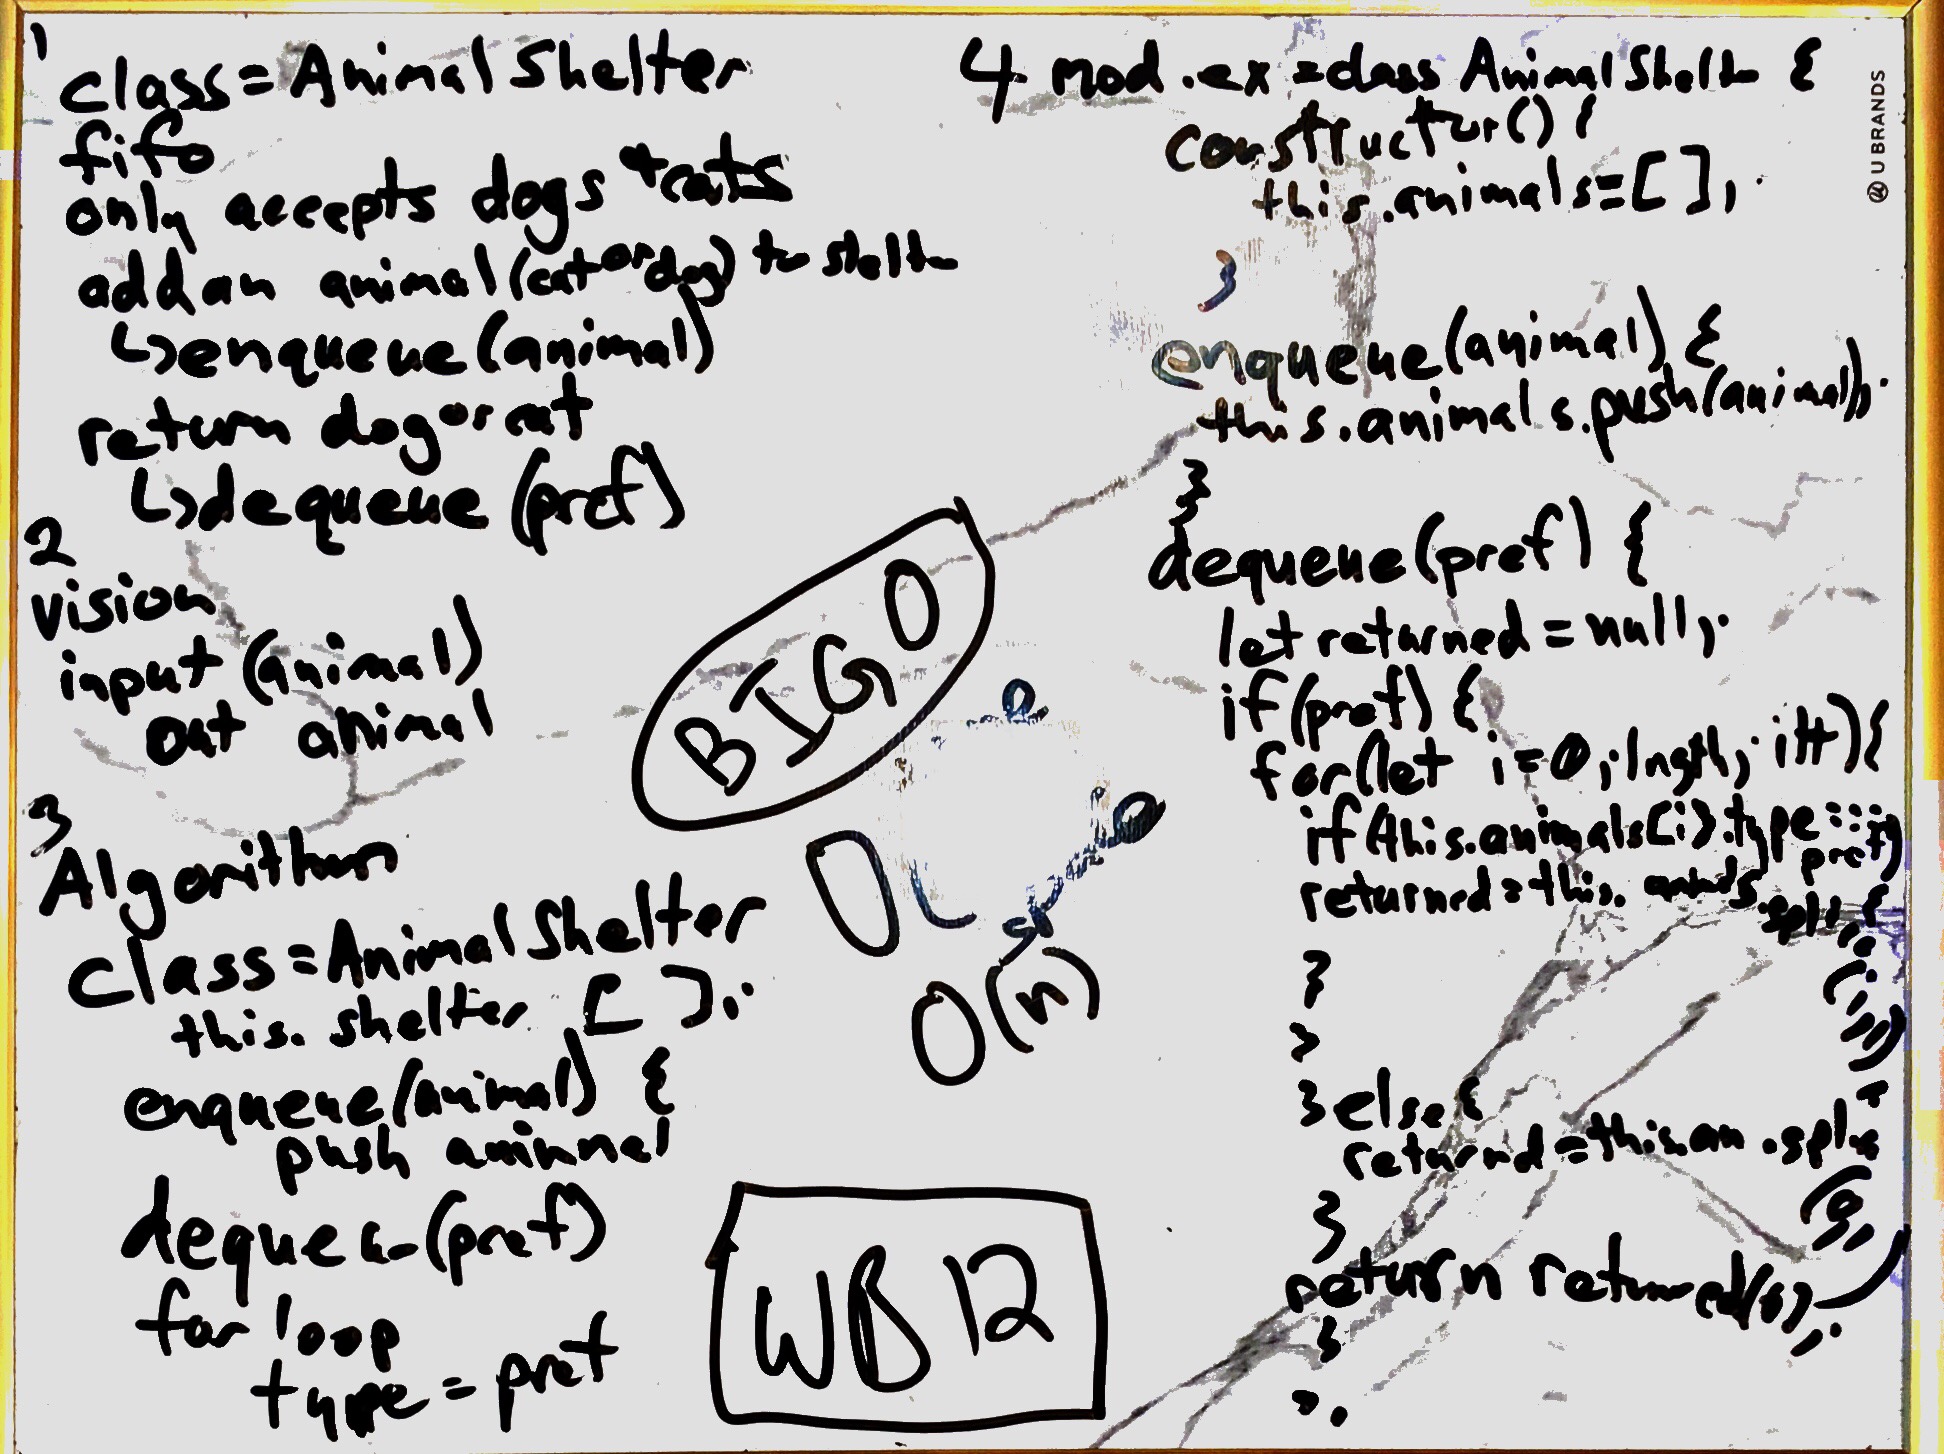 1
class = Animal Shelter
fifo
only accepts dogs + cats
add an animal (cat or dog) to shelt
↳ enqueue (animal)
return dog or cat
↳ dequeue (pref)
2
vision
input (animal)
out animal
3
Algorithm
class = Animal Shelter
this. shelter [ ];
enqueue (animal) {
push animal
(pref)
for loop
type = pref
BIG O
O(n)
WB 12
4 mod.ex = class Animal Shelt {
constructor() {
this.animals = [ ];
}
enqueue (animal) {
this.animals.push(animal);
}
dequeue (pref) {
let returned = null;
if (pref) {
for (let i = 0; lngth; i++) {
if (this.animals[i].type === pref)
returned = this.
}
}
} else {
returnd = this.an .splice
}
return returned
}
};
U BRANDS